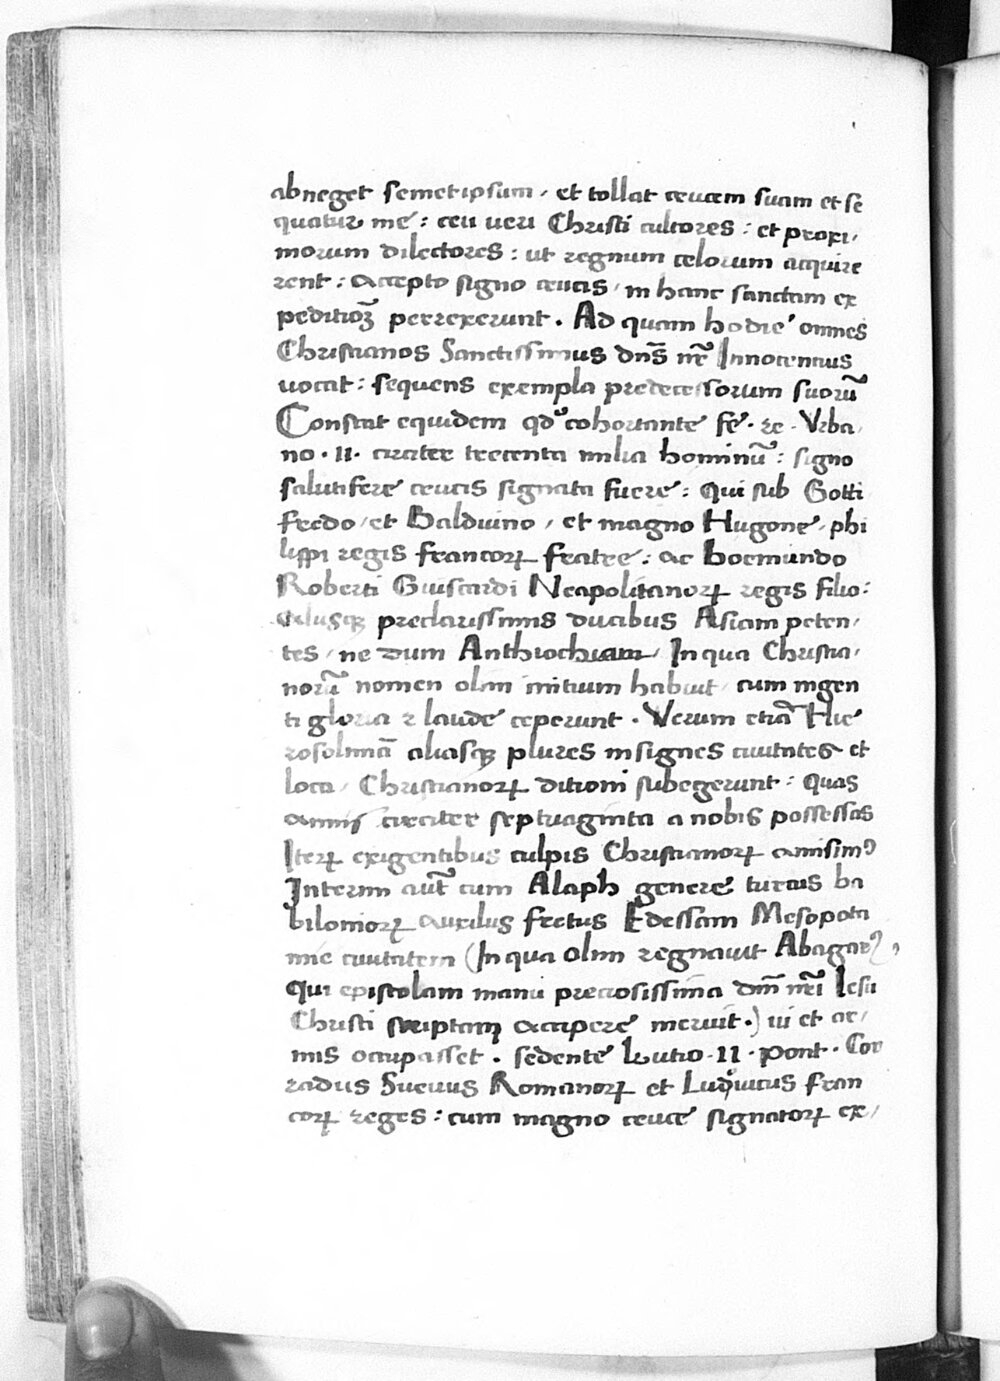 abneget semetipsum, et tollat crucem suam et se
quatur me: ceu ueri Christi cultores: et proxi,
morum dilectores: ut regnum celorum acquire
rent: accepto signo crucis, in hanc sanctam ex
peditioꝫ perrexerunt. Ad quam hodie omnes
Christianos Sanctissimus dn̄s nr̄ Innocentius
uocat: sequens exempla predecessorum suorū
Constat equidem qd cohortante fe. re. Vrba,
no. II. circiter trecenta milia hominū: signo
salutifere crucis signata fuere: Qui sub Gotti
fredo, et Balduino, et magno Hugone, phi
lippi regis francoꝝ fratre: ac boemundo
Roberti Guiscardi Neapolitanoꝝ regis filio:
aliisqꝫ preclarissimis ducibus Asiam peten,
tes, ne dum Anthiochiam, In qua Christia,
norū nomen olim initium habuit, cum ingen
ti gloria ⁊ laude ceperunt. Verum etiā Hie
rosolimā aliasqꝫ plures insignes ciuitates et
loca, Christianoꝝ ditioni subegerunt: Quas
annis circiter septuaginta a nobis possessas
Iteꝝ exigentibus culpis Christianoꝝ amisimꝰ
Interim aut̄ cum Alaph genere turcus ba
bilonioꝝ auxiliis fretus Edessam Mesopota
mie ciuitatem (In qua olim regnauit Abagarꝰ,
Qui epistolam manu preciosissima dn̄i nr̄i Iesu
Christi scriptam accipere meruit.) ui et ar,
mis occupasset. sedente Lutio. II. pont. Con
radus Sueuus Romanoꝝ et Ludouicus fran
coꝝ reges: cum magno cruce signatoꝝ ex,